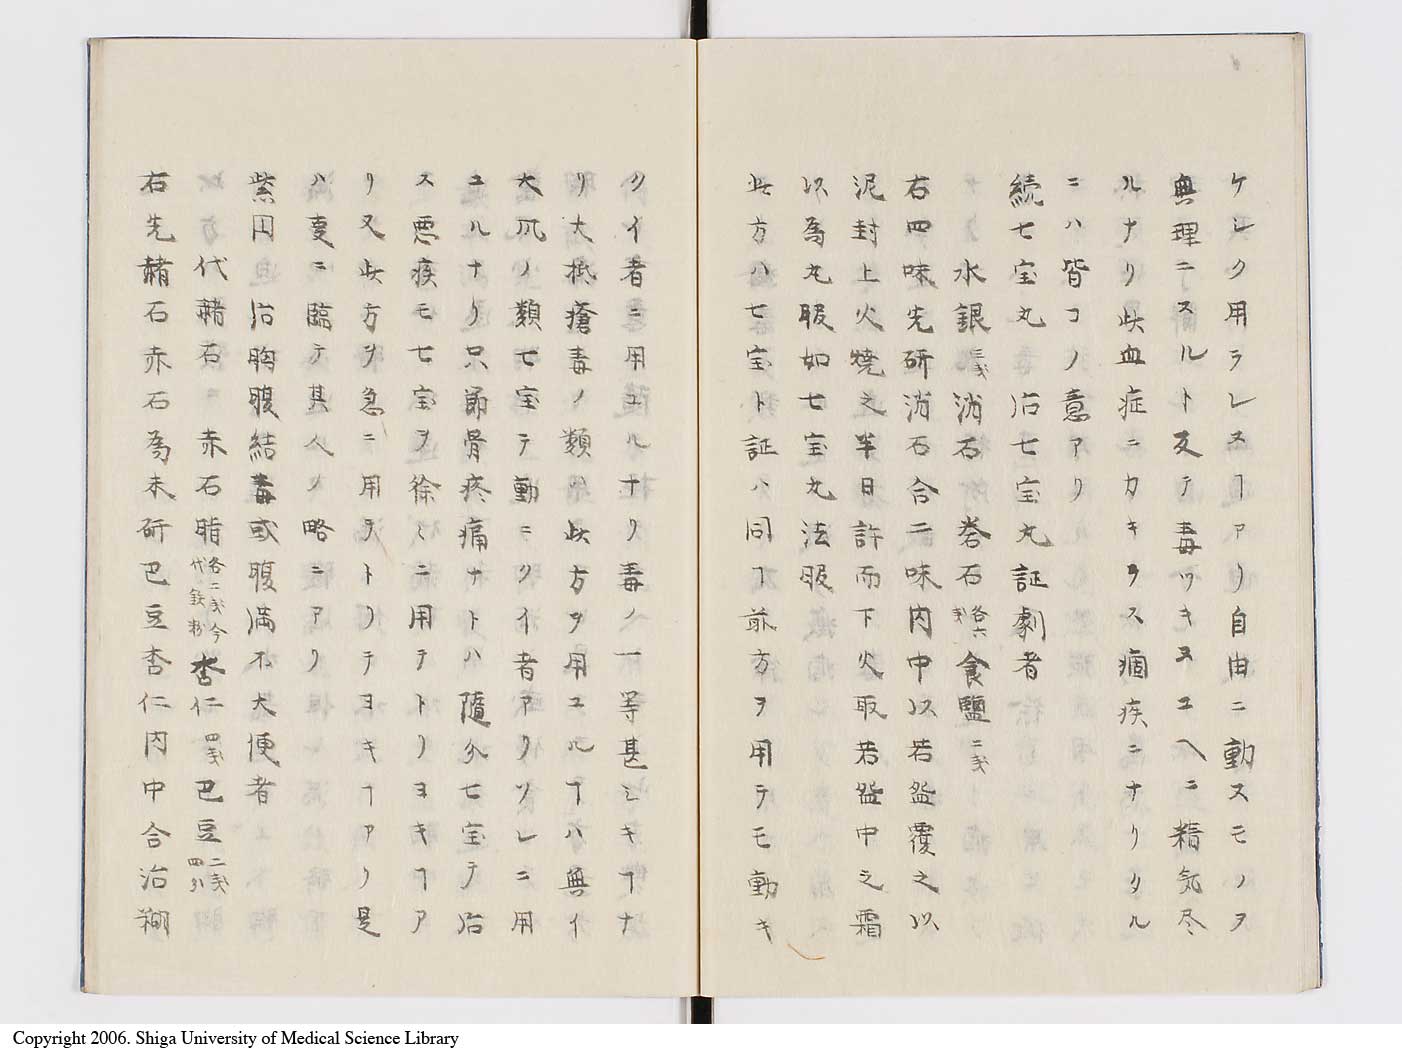 ケレク用ラレヌヿアリ自由ニ動スモノヲ
無理ニスルト反テ毒ツキヌユヘニ精気尽
ルナリ此血症ニカキラス痼疾ニナリタル
ニハ皆コノ意アリ
続七宝丸 治七宝丸証劇者
水銀三戔消石 礬石各六戔食鹽二戔
右四味先研消石合二味内中以若盌覆之以
泥封上火焼之半日許而下火取若盌中之霜
以為丸服如七宝丸法服
此方ハ七宝ト証ハ同ヿ前方ヲ用テモ動キ
クイ者ニ用ユルナリ毒ノ一等甚シキヿナ
リ大抵瘡毒ノ類ハ此方ヲ用ユルヿハ無イ
大凧ノ類七宝テ動ニクイ者アリソレニ用
ユルナリ只節骨疼痛ナトハ随分七宝テ治
ス悪疾モ七宝ヲ徐々ニ用テトリヨキヿア
リ又此方ヲ急ニ用テトリテヨキヿアリ是
ハ変ニ臨テ其人ノ略ニアリ
紫円 治胸腹結毒或腹満不大便者
代赭石 赤石脂各二戔今代鉄粉 杏仁四戔巴豆二戔四分
右先赭石赤石為末研巴豆杏仁内中合治糊
Copyright 2006. Shiga University of Medical Science Library